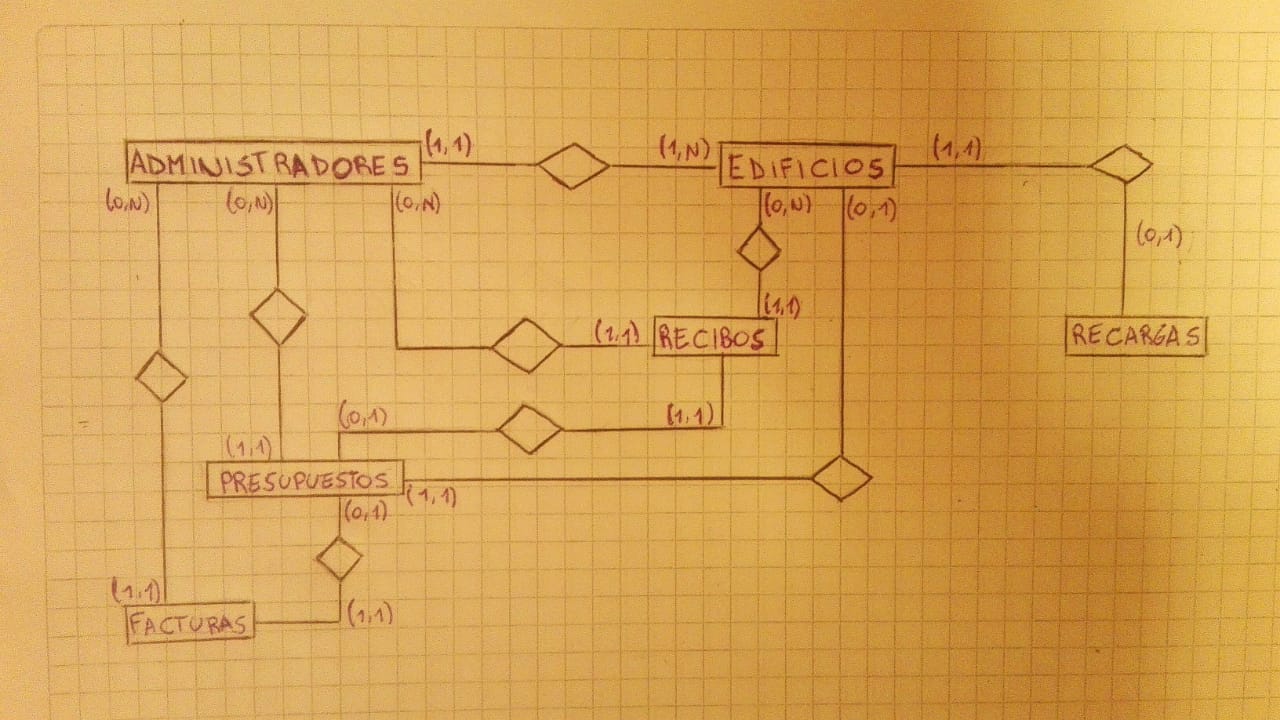 ADMINISTRADORES (1,1) (1,N) EDIFICIOS (1,1)
(0,N) (0,N) (0,N) (0,N) (0,1)
(0,1)
(1,1)
(1,1) RECIBOS RECARGAS
(0,1) (1,1)
(1,1)
PRESUPUESTOS
(1,1)
(0,1)
(1,1)
FACTURAS (1,1)